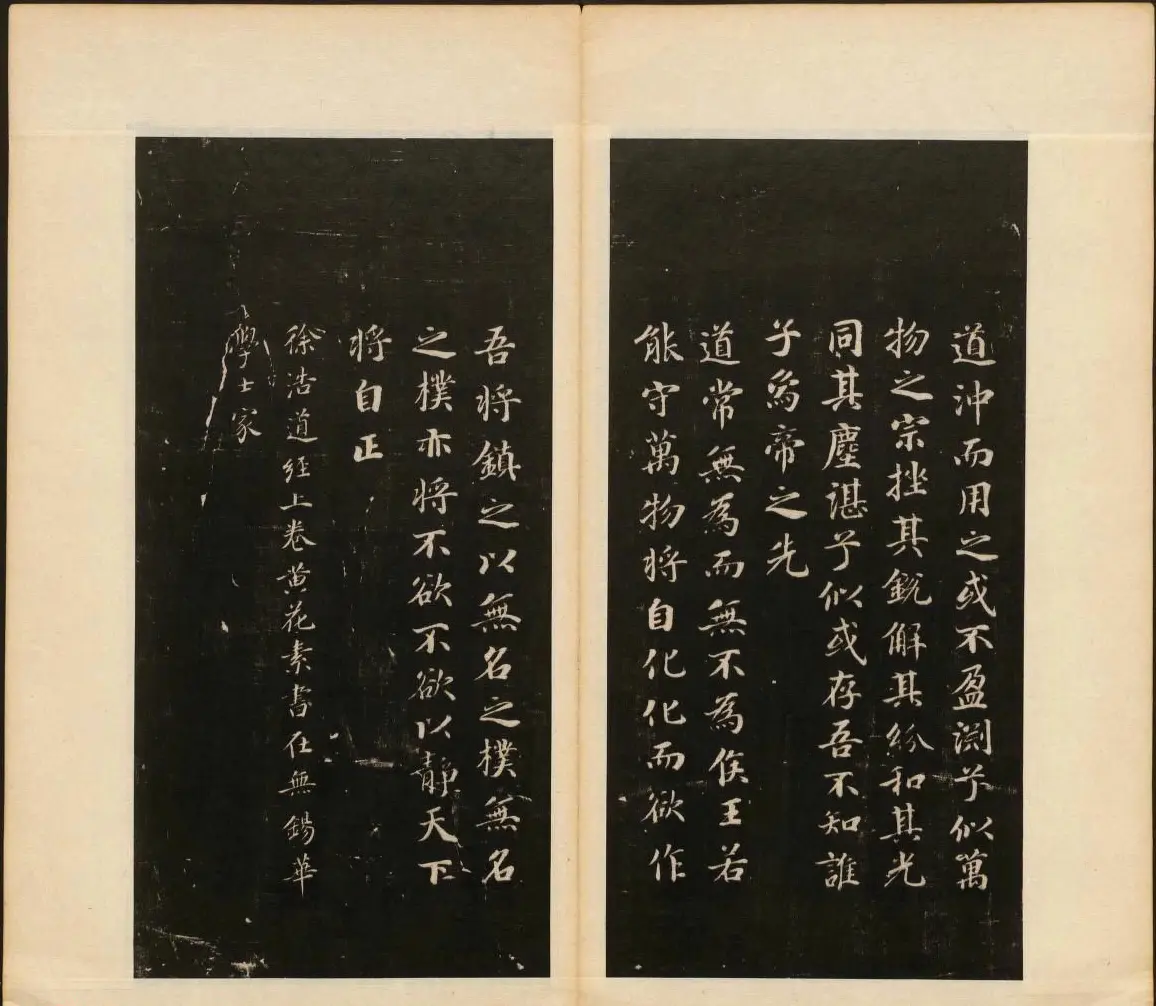 道沖而用之或不盈淵乎似萬
物之宗挫其銳解其紛和其光
同其塵湛乎似或存吾不知誰
子為帝之先
道常無為而無不為侯王若
能守萬物將自化化而欲作
吾將鎮之以無名之樸無名
之樸亦將不欲不欲以靜天下
將自正
徐浩道經上卷黃花素書在無錫華
學士家